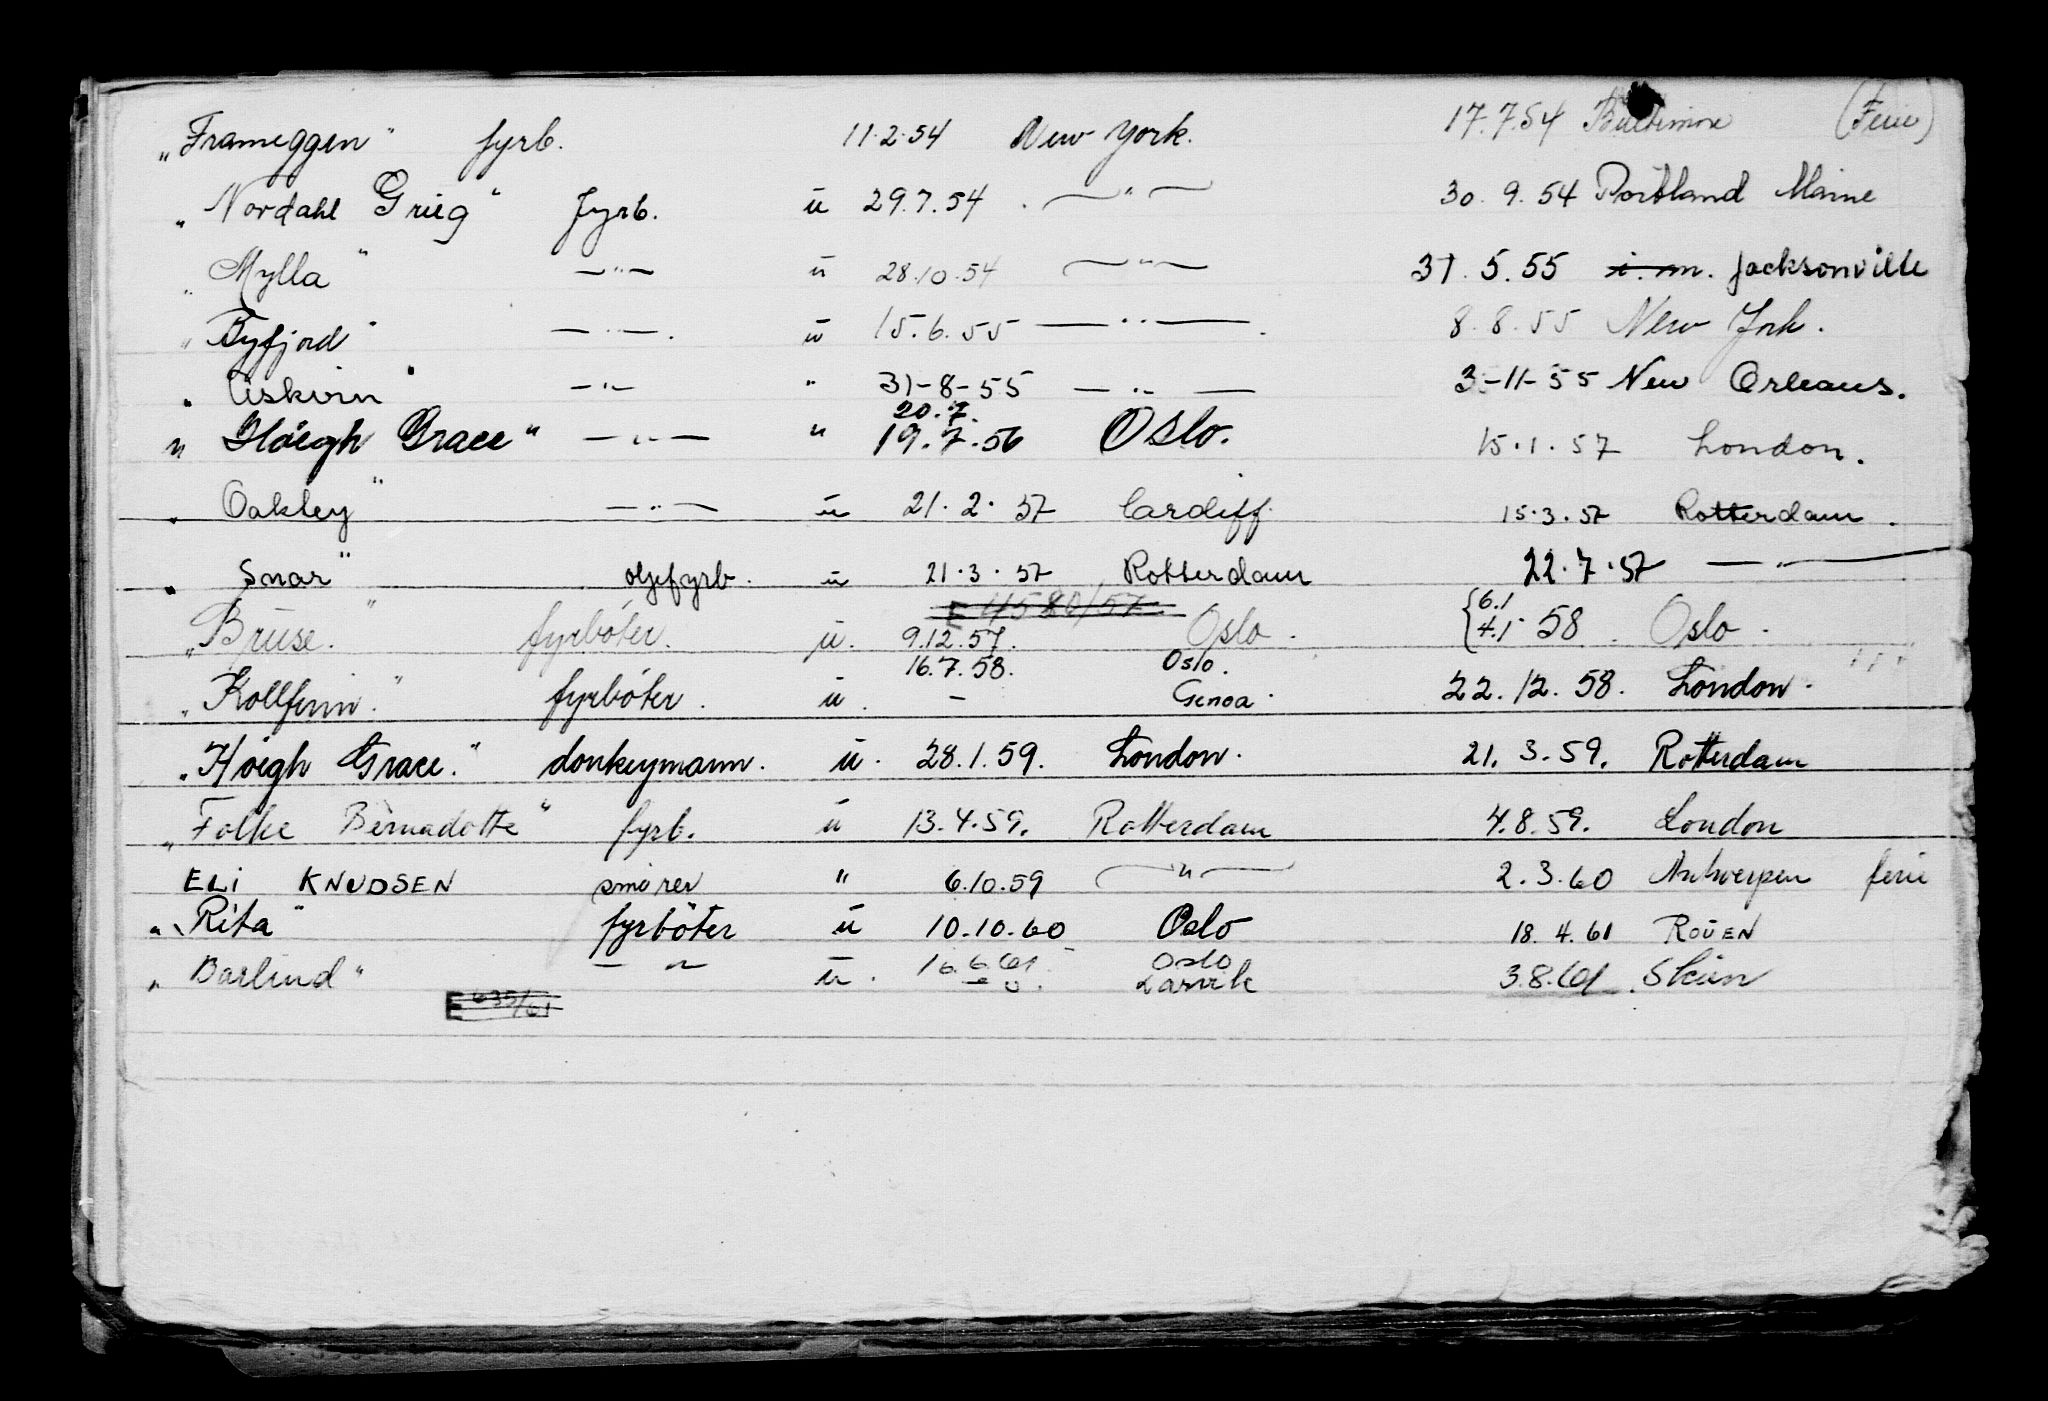 „Frameggen" fyrb. 11.2.54 New York. 17.7.54 Baltimore (Ferie)
„Nordahl Grieg" fyrb. u 29.7.54 . — " — 30. 9. 54 Portland Maine
„Mylla" — " — u 28.10.54 — " — 31. 5. 55 i. m. Jacksonville
„Byfjord" — " — . u 15.6.55 — " — . 8. 8. 55 New York.
— " — " 31-8-55 — " — 3-11-55 New Orleans.
20.7.
„Höegh Grace" — " — " 19.7.56 Oslo. 15.1.57 London.
„Oakley" — " — u 21.2.57 Cardiff. 15.3.57 Rotterdam.
„Snar" oljefyrb. u 21.3.57 Rotterdam 22.7.57 — " —
E 4580/57
„Bruse." fyrböter. u. 9.12.57. Oslo. {6.1 4.1 58. Oslo.
16.7.58. Oslo.
„Kollfinn." fyrböter. u. — Genoa. 22.12.58. London.
„Höegh Grace." donkeymann. u. 28.1.59. London. 21. 3.59. Rotterdam
„Folke Bernadotte" fyrb. u 13.4.59. Rotterdam 4.8.59. London
ELI KNUDSEN smörer " 6.10.59 — " — 2.3.60 Antwerpen ferie
„Rita" fyrböter u 10.10.60 Oslo 18.4.61 ROUEN
16.6.61 Oslo
„Barlind" — " — u. — " — . Larvik 3.8.61. Skien
E 635/61